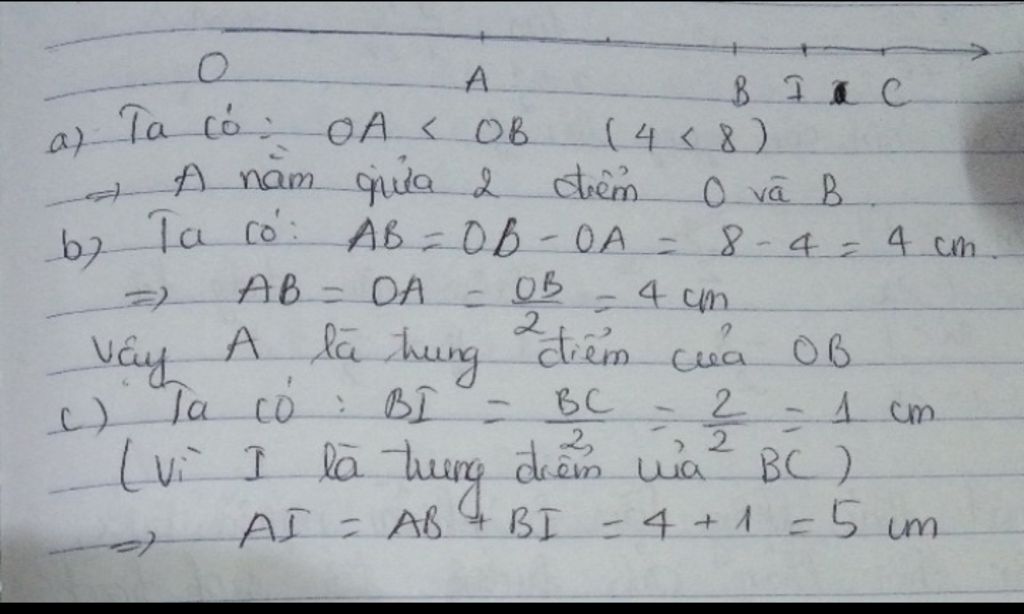 O A B I C
a) Ta có: OA < OB (4 < 8)
=> A nằm giữa 2 điểm O và B.
b) Ta có: AB = OB - OA = 8 - 4 = 4 cm.
=> AB = OA = OB/2 = 4 cm
Vậy A là trung điểm của OB
c) Ta có: BI = BC/2 = 2/2 = 1 cm
(Vì I là trung điểm của BC)
=> AI = AB + BI = 4 + 1 = 5 cm